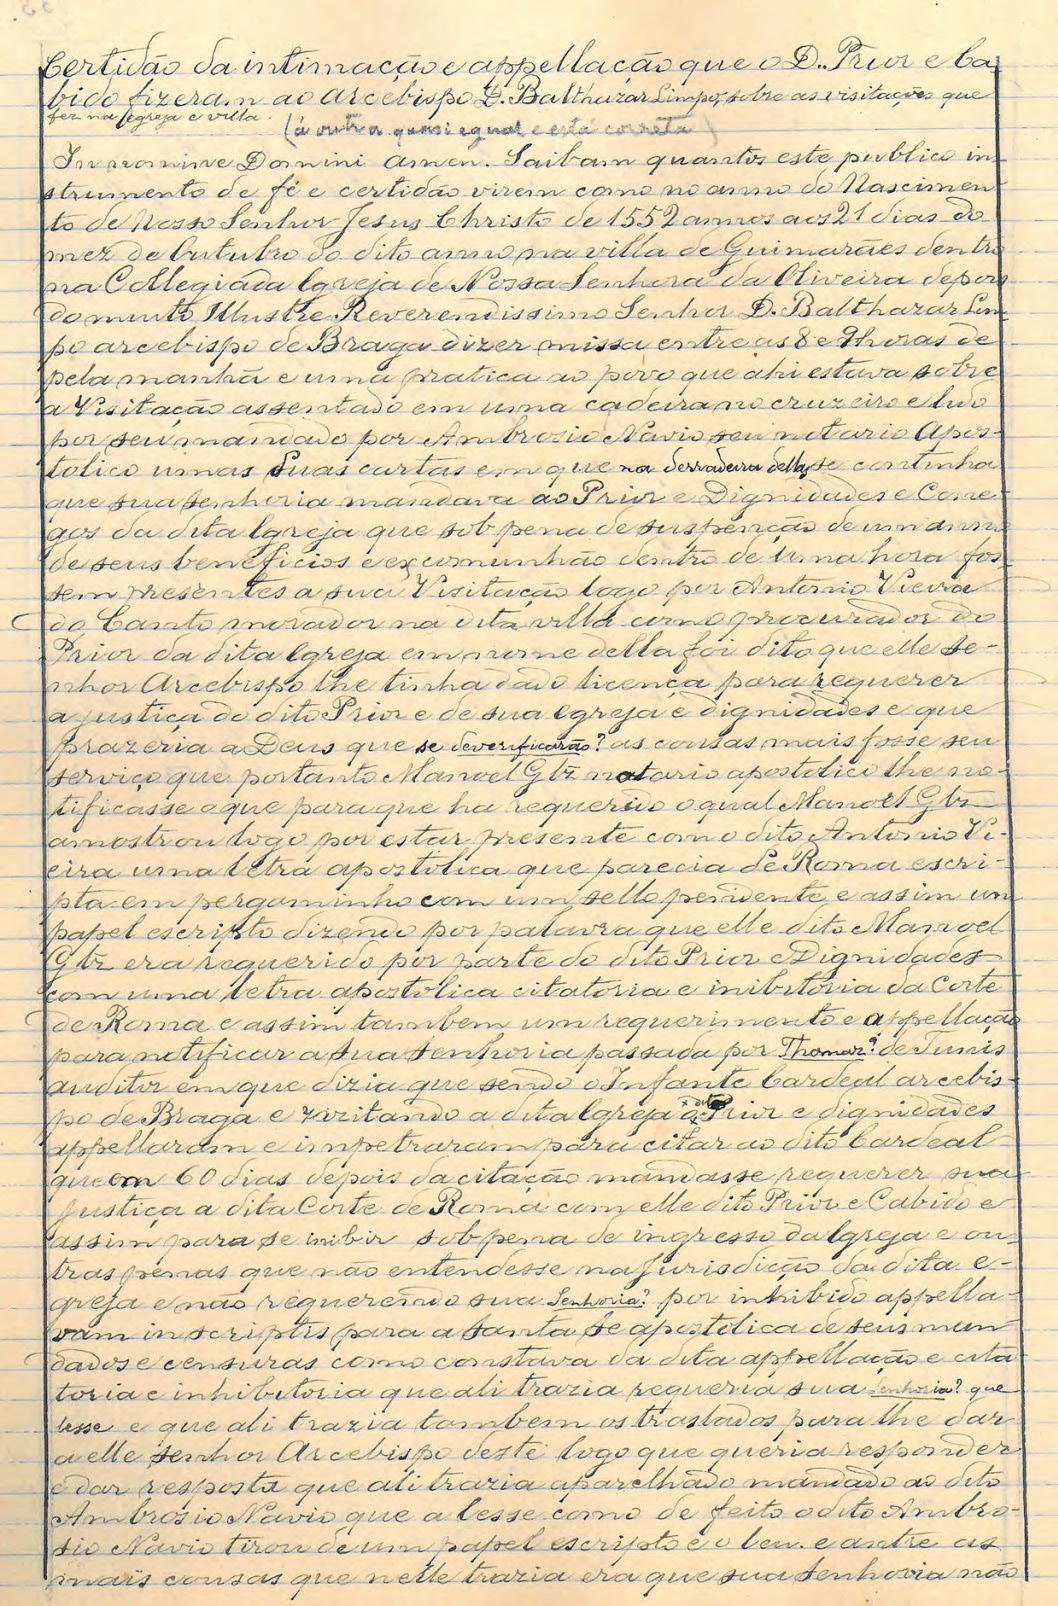 Certidão da intimação e appellação que o D. Prior e Ca
bido fizeram ao arcebispo D. Balthazar Limpo, sobre as visitações que
fez na Igreja e villa.
(á outra quasi egual e está correta)
In nomine Domini amen. Saibam quantos este publico in-
strumento de fé e certidão virem como no anno do Nascimen-
to de Nosso Senhor Jesus Christo de 1552 annos aos 21 dias do
mez de Outubro do dito anno na villa de Guimarães dentro
na Collegiada Igreja de Nossa Senhora da Oliveira depois
do muito Illustre Reverendissimo Senhor D. Balthazar Lim-
po arcebispo de Braga dizer missa entre as 8 e 9 horas de
pela manhã e uma pratica ao povo que ahi estava sobre
a Visitação assentado em uma cadeira no cruzeiro e lido
por seu mandado por Ambrosio Navio seu notario Apos-
tolico umas suas cartas em que na derradeira dellas se continha
que sua senhoria mandava ao Prior e Dignidades e Cone-
gos da dita Igreja que sob pena de suspenção de um anno
de seus beneficios e excomunhão dentro de uma hora fos-
sem presentes a sua Visitação logo por Antonio Vieira
do Canto morador na dita villa como procurador do
Prior da dita Igreja em nome della foi dito que elle se-
nhor Arcebispo lhe tinha dado licença para requerer
a justiça do dito Prior e de sua egreja e dignidades e que
prazeria a Deus que se deverificarão? as cousas mais fosse seu
serviço que portanto Manoel Glz notario apostolico lhe no-
tificasse o que para que ha requerido o qual Manoel Glz
amostrou logo por estar presente com o dito Antonio Vi-
eira uma letra apostolica que parecia de Roma escri-
pta em pergaminho com um sello pendente e assim um
papel escripto dizendo por palavra que elle dito Manoel
Glz era requerido por parte do dito Prior e Dignidades
com uma letra apostolica citatoria e inibitoria da Corte
de Roma e assim tambem um requerimento e appellação
para notificar a sua senhoria passada por Thomaz? de Tunis
auditor em que dizia que sendo o Infante Cardeal arcebis-
po de Braga e vizitando a dita Igreja o dito Prior e dignidades
appellaram e impetraram para citar ao dito Cardeal
que em 60 dias depois da citação mandasse requerer sua
Justiça a dita Corte de Roma com elle dito Prior e Cabido e
assim para se inibir sob pena de ingresso da Igreja e ou-
tras penas que não entendesse na Jurisdicção da dita e-
greja e não requerendo sua Senhoria? por inhibido appella-
vam inscriptis para a santa se apostolica de seus man-
dados e censuras como constava da dita appellação e cita
toria e inhibitoria que ali trazia requeria sua Senhoria? que
lesse e que ali trazia tambem os traslados para lhe dar
a elle senhor Arcebispo deste logo que queria responder
e dar resposta que ali trazia aparelhado mandado ao dito
Ambrosio Navio que a lesse como de feito o dito Ambro-
sio Navio tirou de um papel escripto e o leu. e antre as
mais cousas que nelle trazia era que sua senhoria não